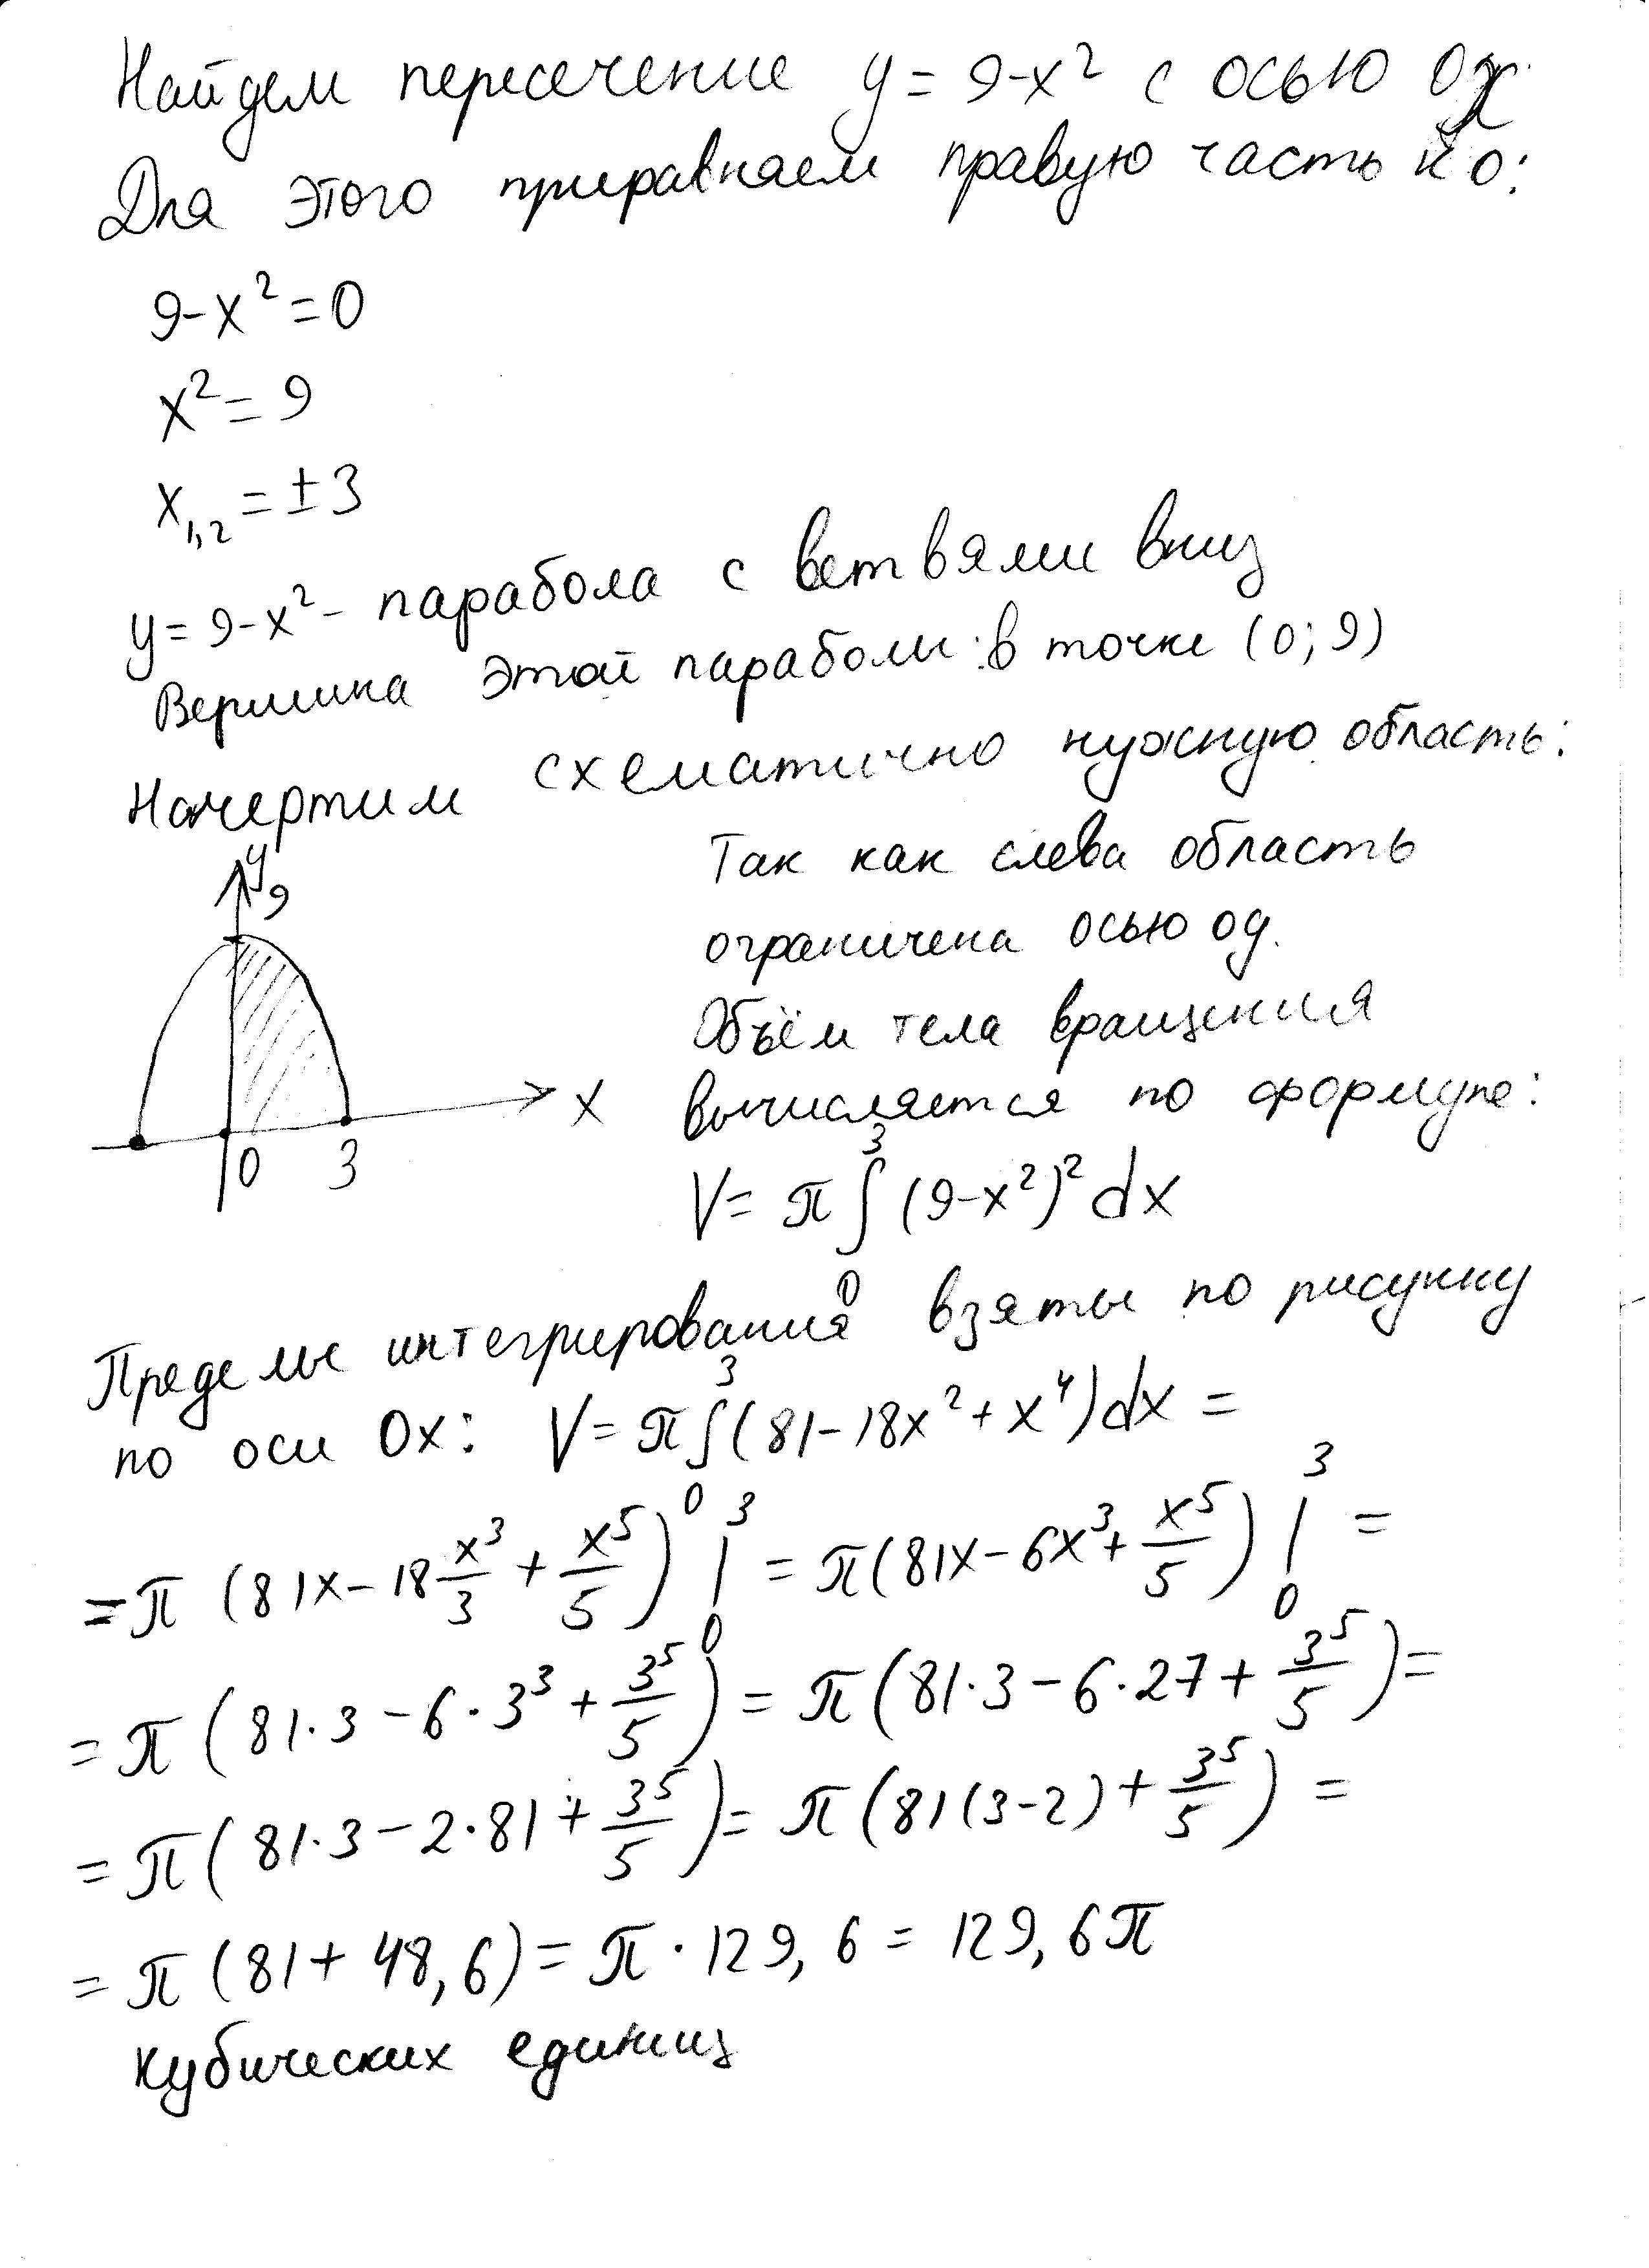 Найдем пересечение y = 9-x² с осью Ox
Для этого приравняем правую часть к 0:
9-x² = 0
x² = 9
x₁,₂ = ±3
y = 9-x² - парабола с ветвями вниз
Вершина этой параболы: в точке (0; 9)
Начертим схематично нужную область:
y
9
0
3
x
Так как слева область
ограничена осью oy.
Объём тела вращения
вычисляется по формуле:
V = π∫₀³ (9-x²)² dx
Пределы интегрирования взяты по рисунку
по оси Ox: V = π∫₀³ (81-18x² + x⁴)dx =
= π (81x - 18 x³/3 + x⁵/5) |₀³ = π(81x - 6x³ + x⁵/5) |₀³ =
= π (81·3 - 6·3³ + 3⁵/5) = π(81·3 - 6·27 + 3⁵/5) =
= π(81·3 - 2·81 + 3⁵/5) = π(81(3-2) + 3⁵/5) =
= π (81 + 48,6) = π · 129,6 = 129,6π
кубических единиц